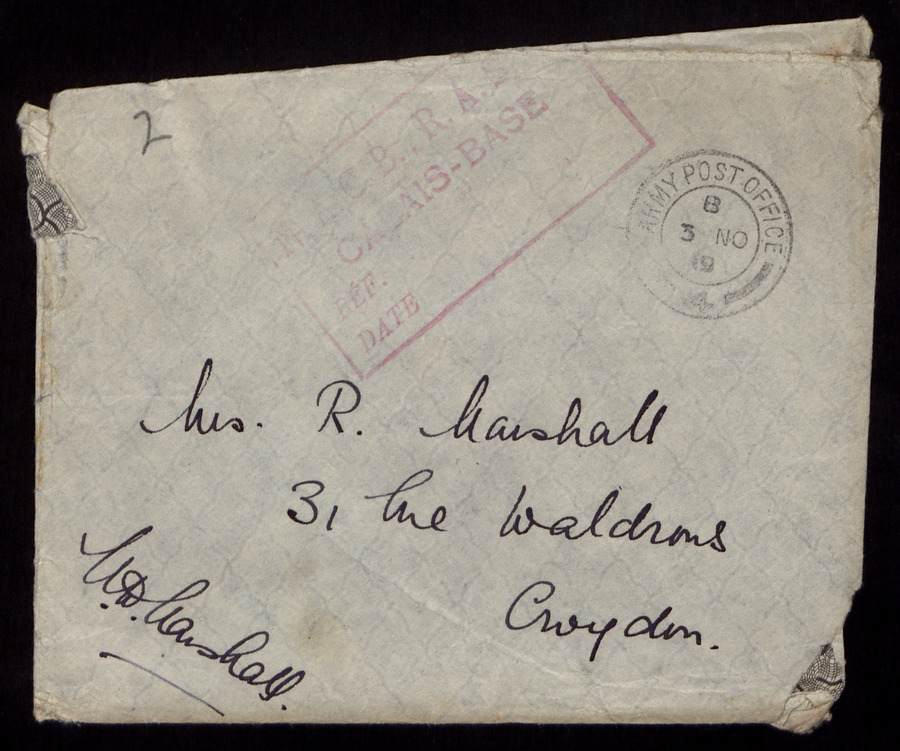 2
B., R.A.
CALAIS-BASE
REF.
DATE
ARMY POST OFFICE
B
3 NO
19
4
Mrs. R. Marshall
31 The Waldrons
Croydon.
Marshall.